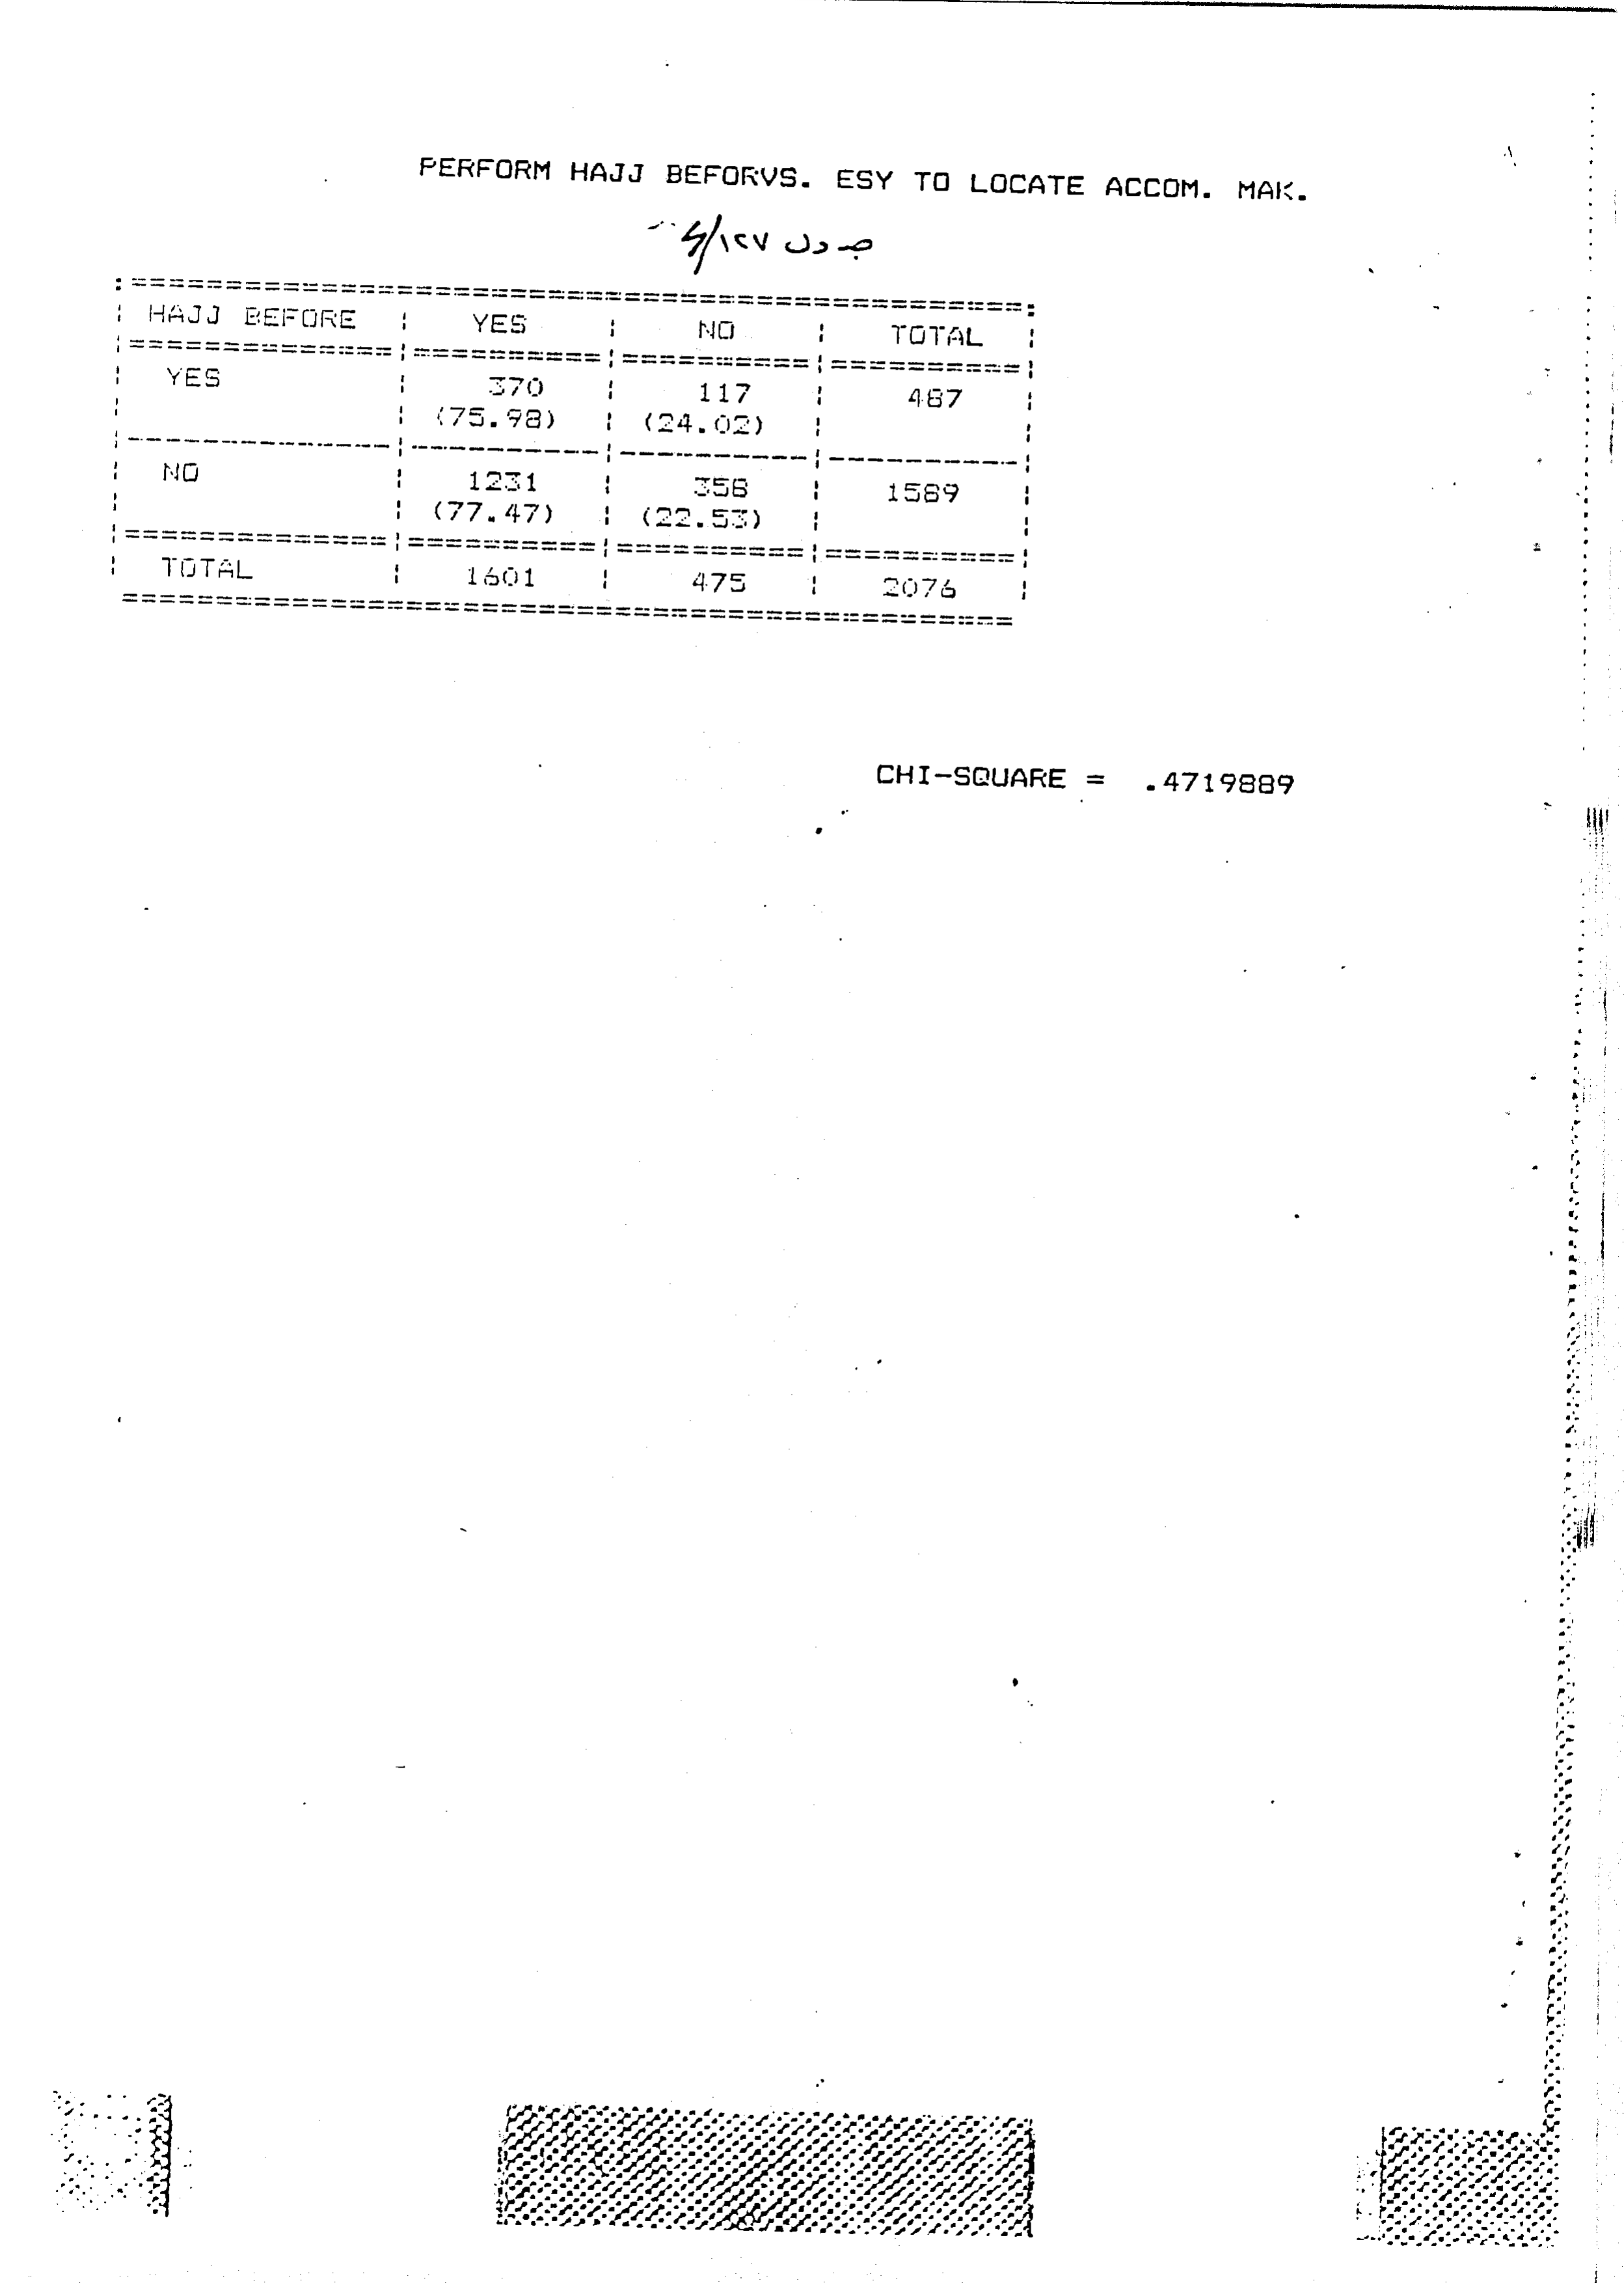 PERFORM HAJJ BEFORVS. ESY TO LOCATE ACCOM. MAK.
جدول ١٢٧/٤
HAJJ BEFORE YES NO TOTAL
YES 370 117 487
(75.98) (24.02)
NO 1231 358 1589
(77.47) (22.53)
TOTAL 1601 475 2076
CHI-SQUARE = .4719889